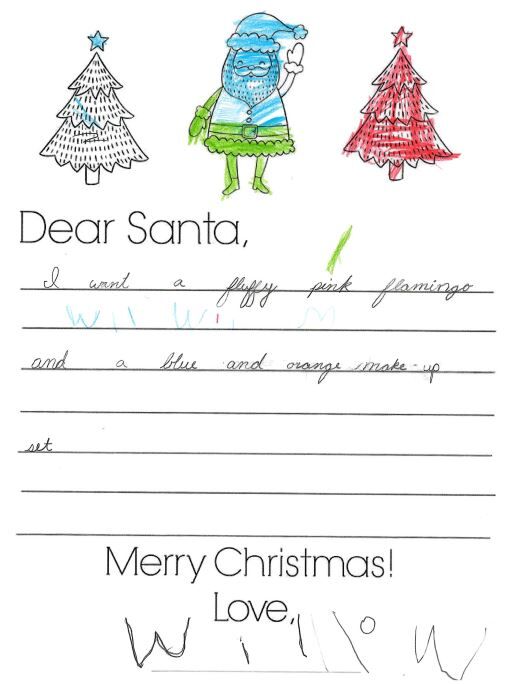 Dear Santa,
I want a fluffy pink flamingo
and a blue and orange make-up
set
Merry Christmas!
Love,
Willow